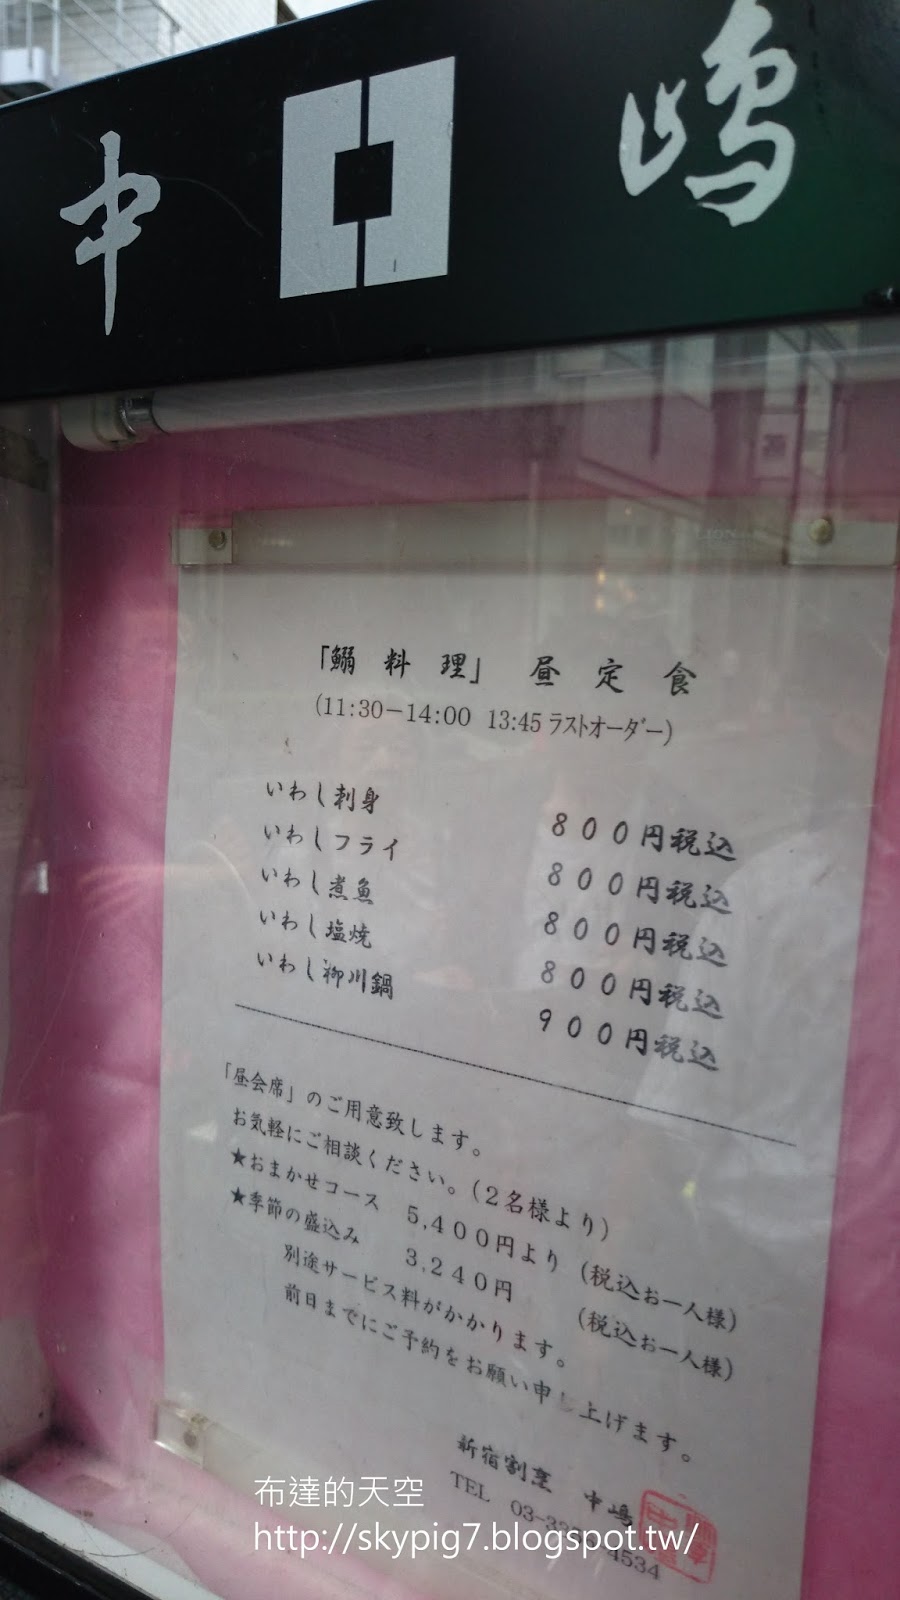 中 嶋
「鰯料理」昼定食
(11:30-14:00 13:45ラストオーダー)
いわし刺身 800円税込
いわしフライ 800円税込
いわし煮魚 800円税込
いわし塩焼 800円税込
いわし柳川鍋 900円税込
「昼会席」のご用意致します。
お気軽にご相談ください。(2名様より)
★おまかせコース 5,400円より (税込お一人様)
★季節の盛込み 3,240円 (税込お一人様)
別途サービス料がかかります。
前日までにご予約をお願い申し上げます。
新宿割烹 中嶋
TEL 03-33 4534
布達的天空
http://skypig7.blogspot.tw/